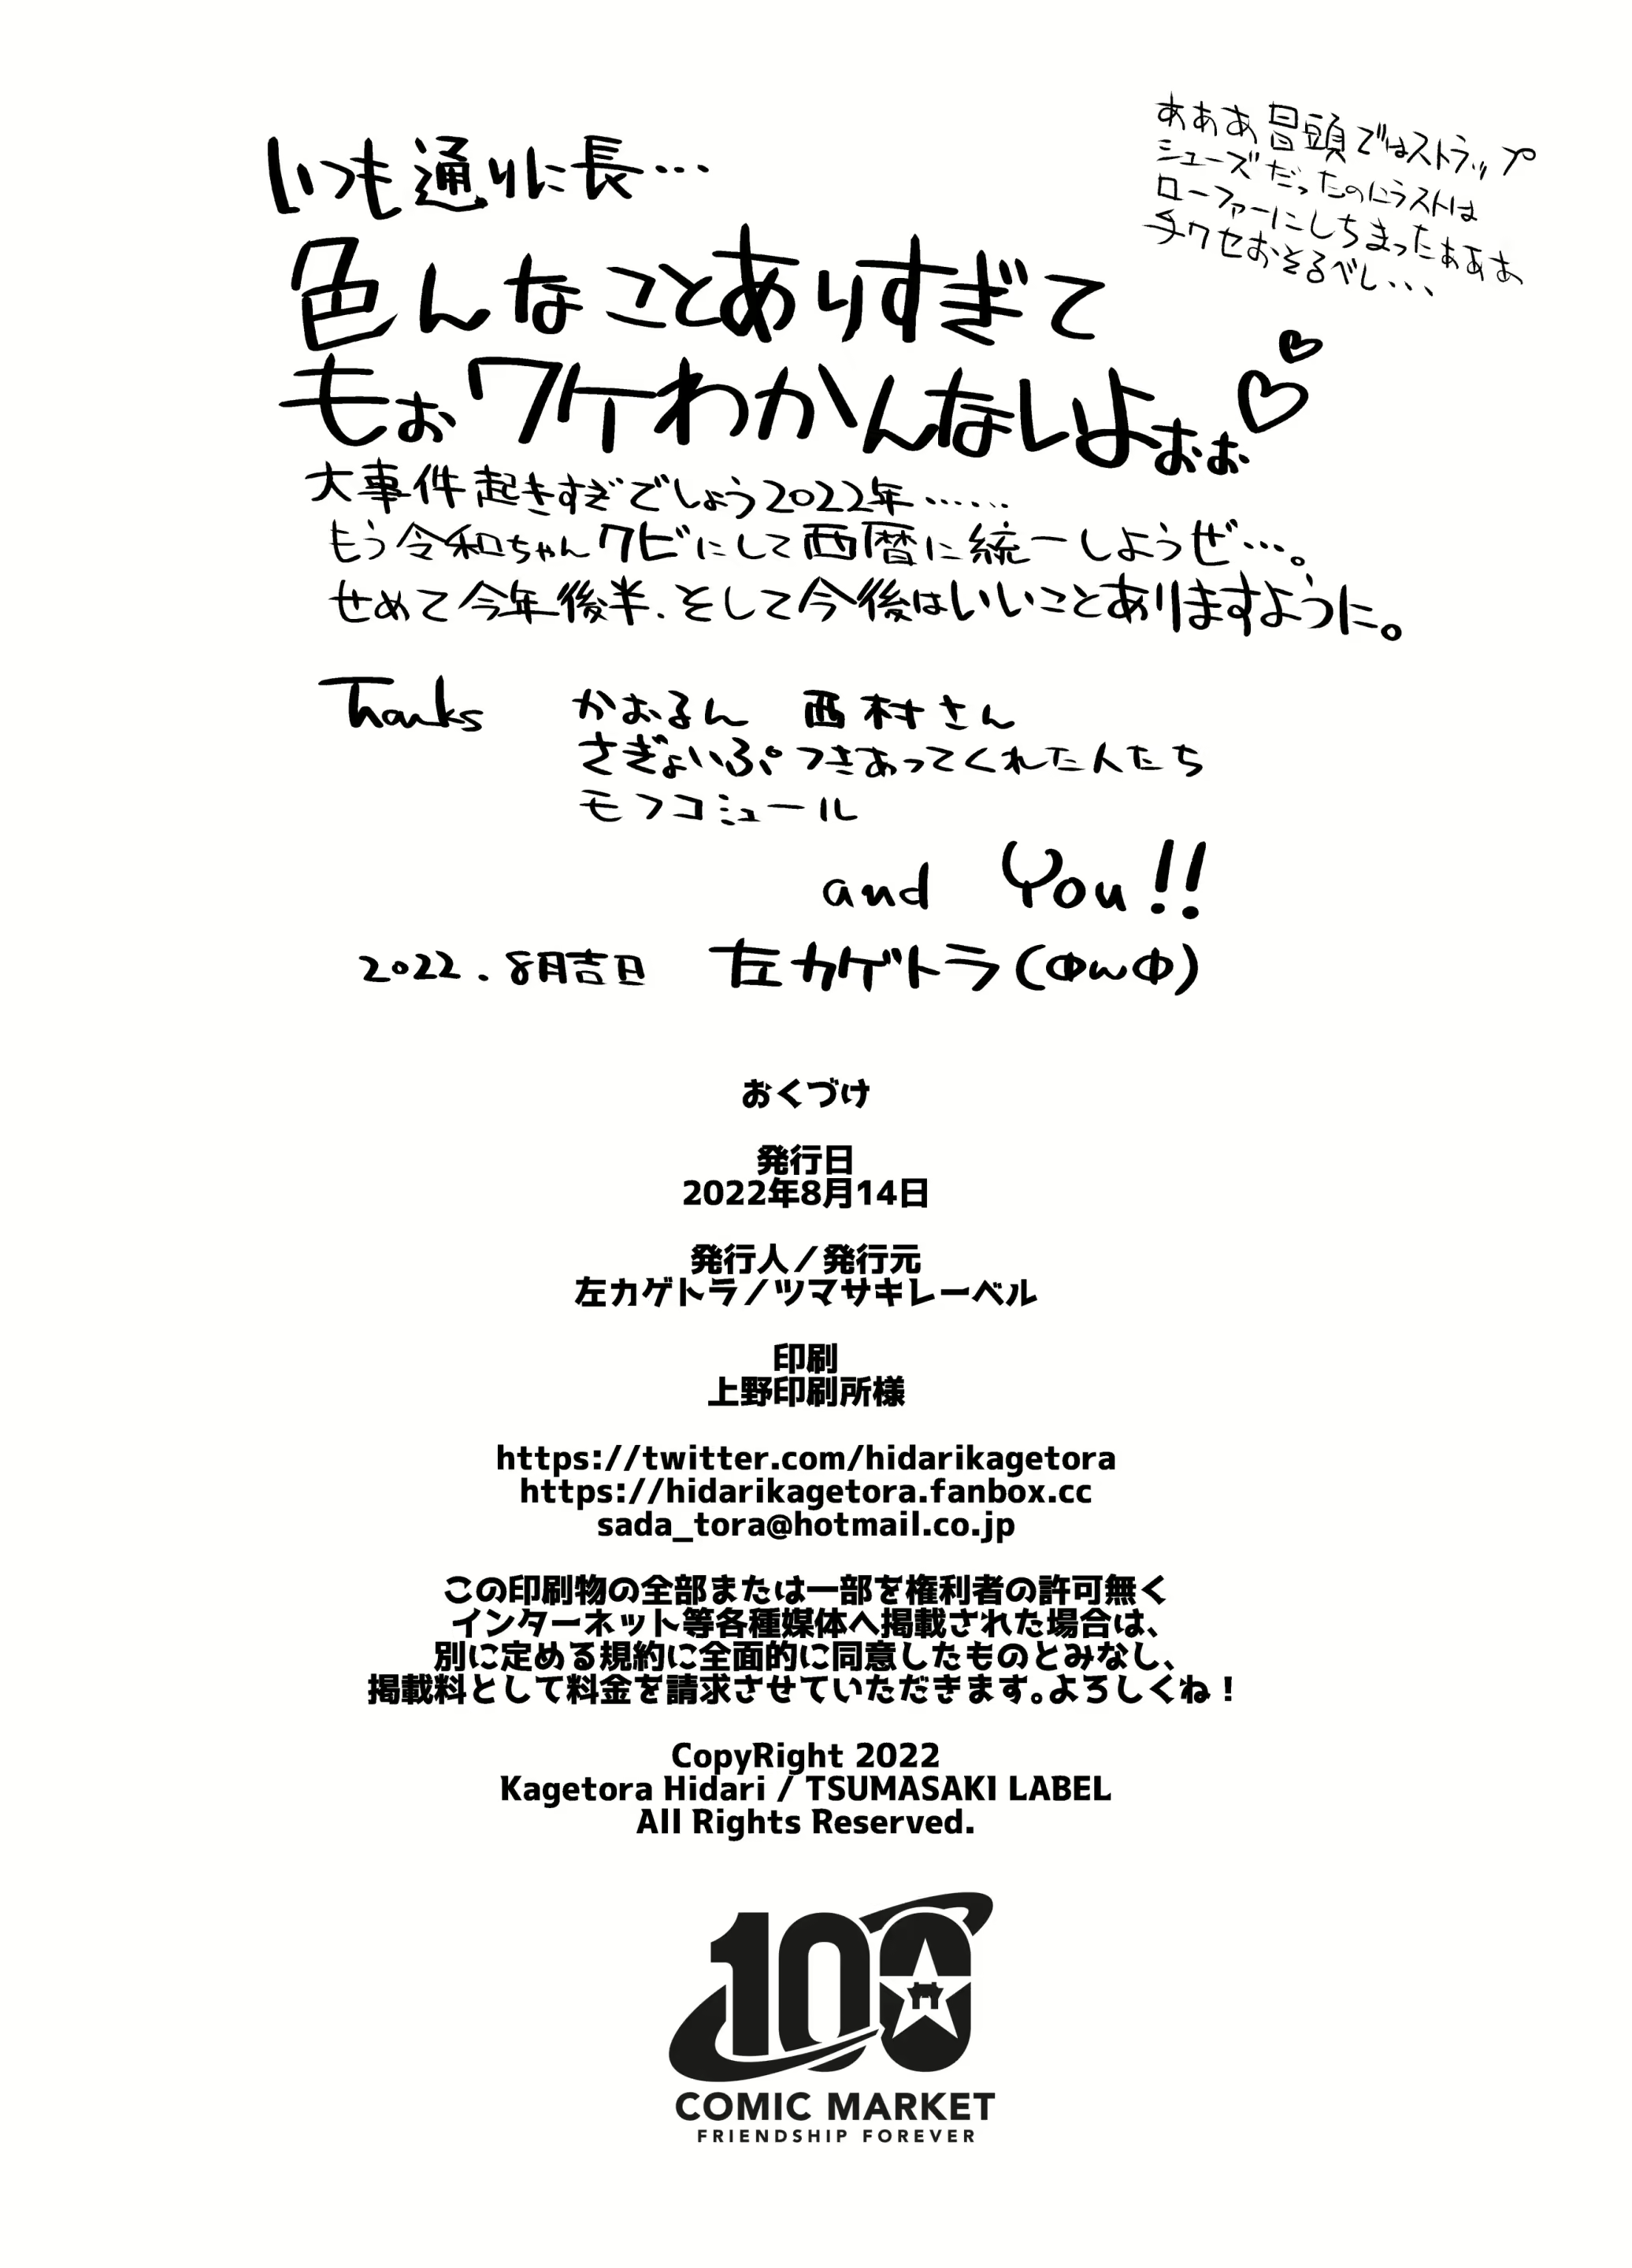 いつも通りに長…
色んなことありすぎて
もぉワケわかんなしよぉぉ♡♡
大事件起きすぎでしょう2022年……
もう令和ちゃんクビにして西暦に統一しようぜ…。
せめて今年後半、そして今後はいいことありますように。
あああ冒頭ではストラップ
シューズだったのにラストは
ローファーにしちまったぁああ
手クセおそるべし...
Thanks かおるん 西村さん
さぎょいぷつきあってくれた人たち
モフコミュール
and You!!
2022.8月吉日 左カゲトラ(ΦωΦ)
おくづけ
発行日
2022年8月14日
発行人／発行元
左カゲトラ／ツマサキレーベル
印刷
上野印刷所様
https://twitter.com/hidarikagetora
https://hidarikagetora.fanbox.cc
sada_tora@hotmail.co.jp
この印刷物の全部または一部を権利者の許可無く
インターネット等各種媒体へ掲載された場合は、
別に定める規約に全面的に同意したものとみなし、
掲載料として料金を請求させていただきます。よろしくね！
CopyRight 2022
Kagetora Hidari / TSUMASAKI LABEL
All Rights Reserved.
100
COMIC MARKET
FRIENDSHIP FOREVER